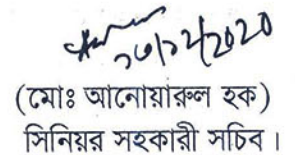 ১৩/১২/2020
(মোঃ আনোয়ারুল হক)
সিনিয়র সহকারী সচিব।